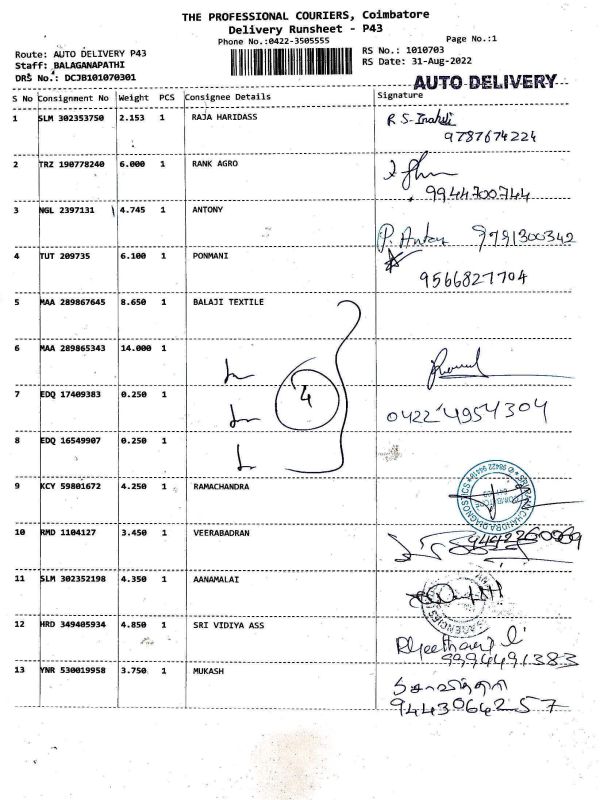 THE PROFESSIONAL COURIERS, Coimbatore
Delivery Runsheet - P43
Phone No.:0422-3505555
Page No.:1
Route: AUTO DELIVERY P43
RS No.: 1010703
Staff: BALAGANAPATHI
RS Date: 31-Aug-2022
DRS No.: DCJB101070301
AUTO DELIVERY
S No Consignment No Weight PCS Consignee Details Signature
1 SLM 302353750 2.153 1 RAJA HARIDASS
9787674224
2 TRZ 190778240 6.000 1 RANK AGRO
9944700744
3 NGL 2397131 4.745 1 ANTONY
P. Antony 9791300342
4 TUT 209735 6.100 1 PONMANI
9566827704
5 MAA 289867645 8.650 1 BALAJI TEXTILE
6 MAA 289865343 14.000 1
7 EDQ 17409383 0.250 1
4
0422 4954304
8 EDQ 16549907 0.250 1
9 KCY 59801672 4.250 1 RAMACHANDRA
10 RMD 1104127 3.450 1 VEERABADRAN
11 SLM 302352198 4.350 1 AANAMALAI
12 HRD 349405934 4.850 1 SRI VIDIYA ASS
9994491383
13 YNR 530019958 3.750 1 MUKASH
9443064257